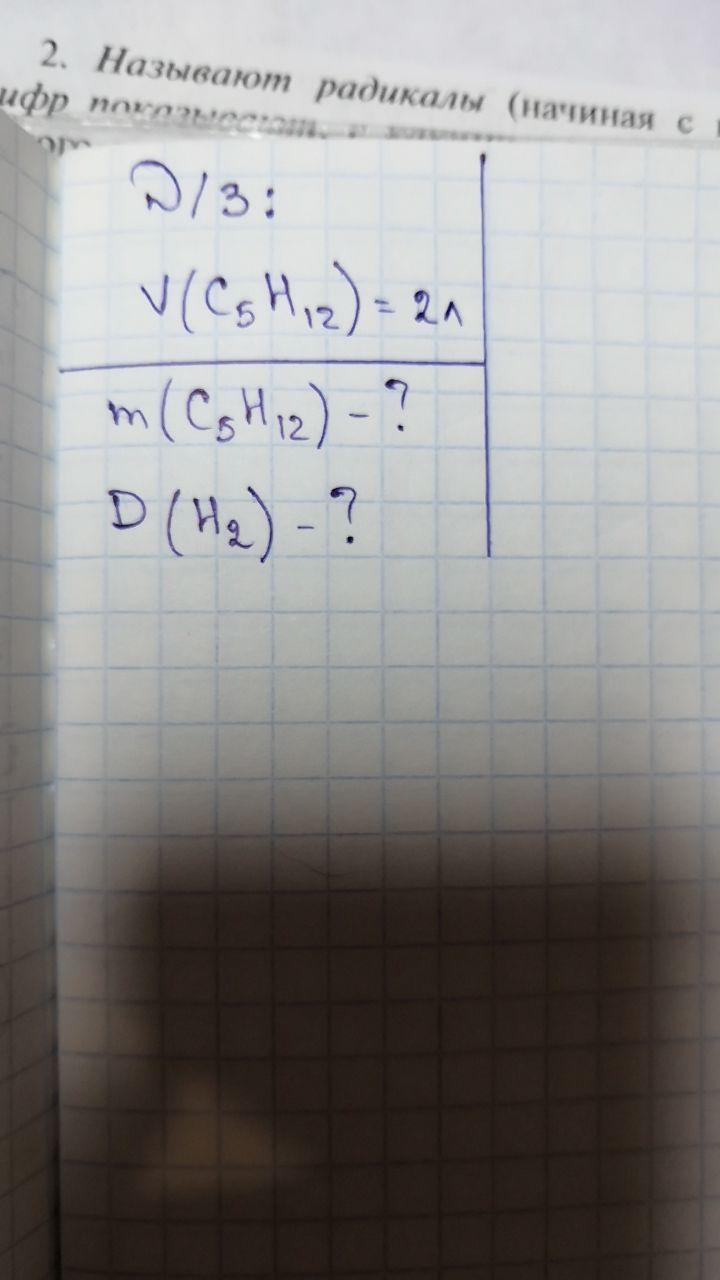 2. Называют радикалы (начиная с
показывают, с
Д/З:
V(C₅H₁₂) = 2л
m(C₅H₁₂) - ?
D(H₂) - ?